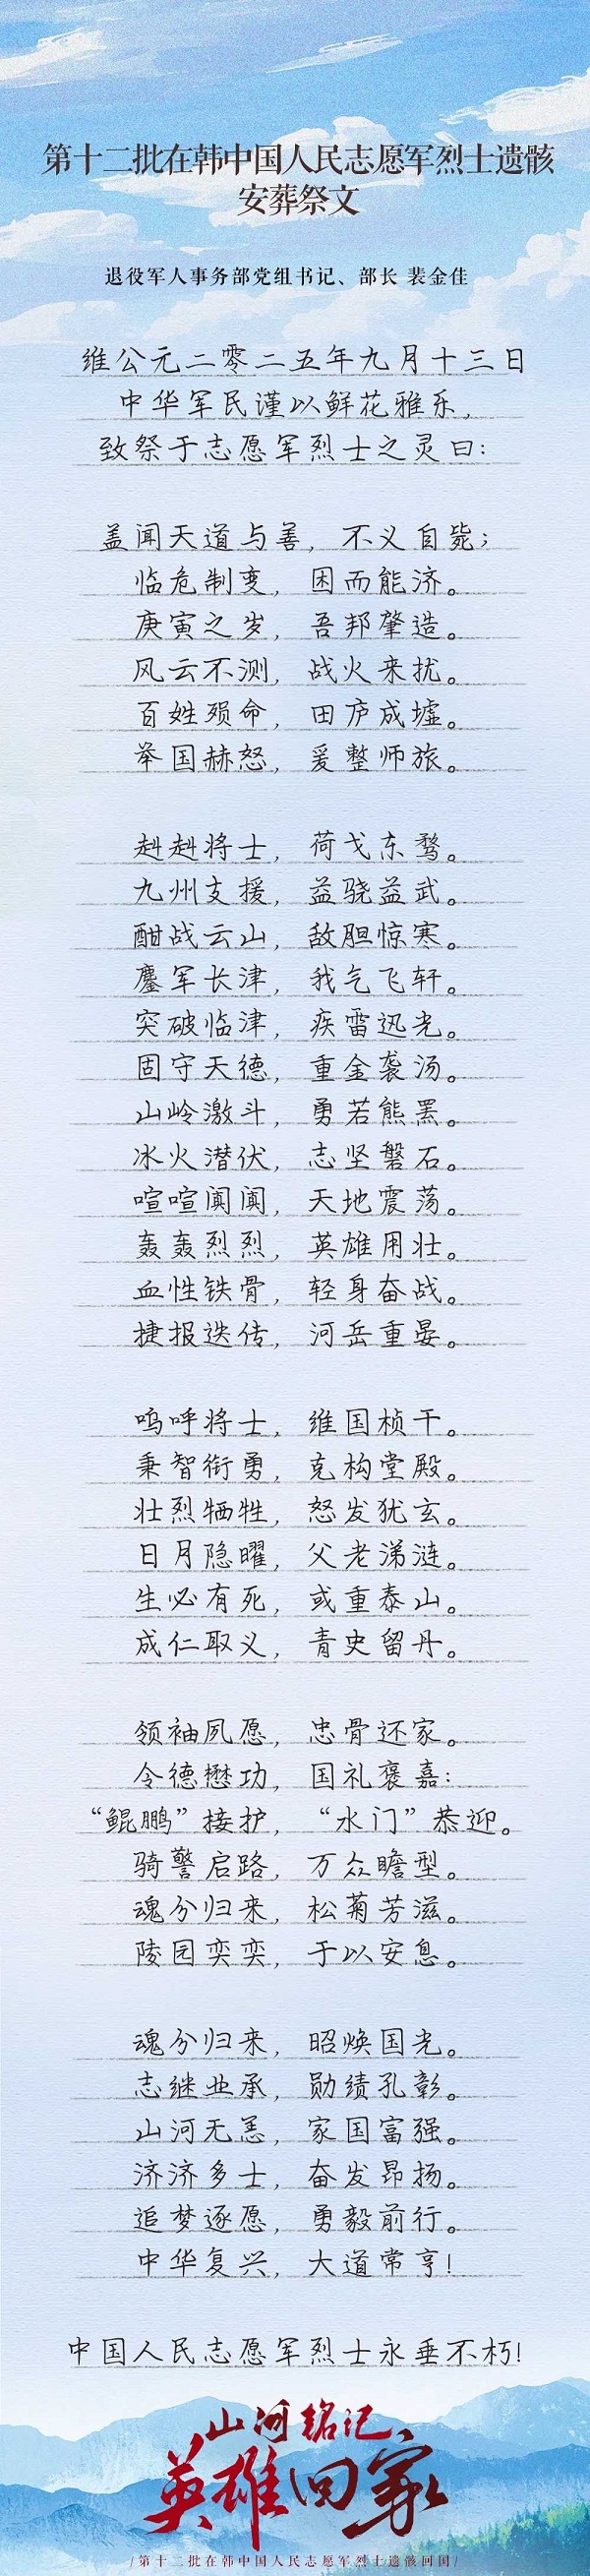 第十二批在韩中国人民志愿军烈士遗骸
安葬祭文
退役军人事务部党组书记、部长 裴金佳
维公元二零二五年九月十三日
中华军民谨以鲜花雅乐，
致祭于志愿军烈士之灵曰：
盖闻天道与善，不义自毙；
临危制变，困而能济。
庚寅之岁，吾邦肇造。
风云不测，战火来扰。
百姓殒命，田庐成墟。
举国赫怒，爰整师旅。
赳赳将士，荷戈东骛。
九州支援，益骁益武。
酣战云山，敌胆惊寒。
鏖军长津，我气飞轩。
突破临津，疾雷迅光。
固守天德，重金袭汤。
山岭激斗，勇若熊罴。
冰火潜伏，志坚磐石。
喧喧阗阗，天地震荡。
轰轰烈烈，英雄用壮。
血性铁骨，轻身奋战。
捷报迭传，河岳重晏。
呜呼将士，维国桢干。
秉智衔勇，克构堂殿。
壮烈牺牲，怒发犹玄。
日月隐曜，父老涕涟。
生必有死，或重泰山。
成仁取义，青史留丹。
领袖夙愿，忠骨还家。
令德懋功，国礼褒嘉：
“鲲鹏”接护，“水门”恭迎。
骑警启路，万众瞻型。
魂兮归来，松菊芳滋。
陵园奕奕，于以安息。
魂兮归来，昭焕国光。
志继业承，勋绩孔彰。
山河无恙，家国富强。
济济多士，奋发昂扬。
追梦逐愿，勇毅前行。
中华复兴，大道常亨！
中国人民志愿军烈士永垂不朽！
山河铭记
英雄回家
/第十二批在韩中国人民志愿军烈士遗骸回国/